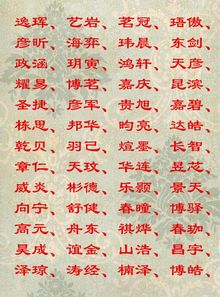 逸珲、艺岩、茗冠、珸傲、
彦昕、海弈、玮晨、东剑、
政涵、玥寅、鸿轩、天彦、
耀易、博茗、嘉庆、昆滨、
圣捷、彦军、贵旭、嘉碧、
栋思、邦华、昀亮、达皓、
乾贝、羽己、煊墨、长智、
章仁、天玟、华连、昱芯、
威炎、彬德、乐颢、景天、
向宁、舒健、春瞳、博驿、
高元、舟东、祺烨、春珈、
昊成、谊金、山浩、昌宇、
泽琼、涛经、楠泽、博皓、